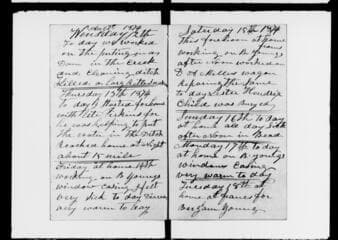 Wensday 12th
To day we worked
on the puting on ay
Dam in the Creek
and Cleaning ditch
Killed a
Thursday 13th 1874
To day I Started for home
with Pete Perkins for
he was helping to put
the water in the Ditch
Reached home at Night
about 15 miles
Friday at home 14th
working on B Youngs
window casing & felt
very sick to day Dinner
very warm to day
Saturday 15th 1874
This forenoon at home
working on B Youngs
afternoon worked on
D A Millers wagon
Repairing the same
to day Sister Hendrix
Child was Buryed
Sunday 16th To day
at home all day Sick
afternoon in Bead
Monday 17th to day
at home on B Youngs
Windows Casing
very warm to day
Tuesday 18th at
home at frames for
Brigam Young